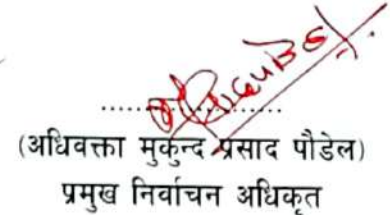 ....................
(अधिवक्ता मुकुन्द प्रसाद पौडेल)
प्रमुख निर्वाचन अधिकृत